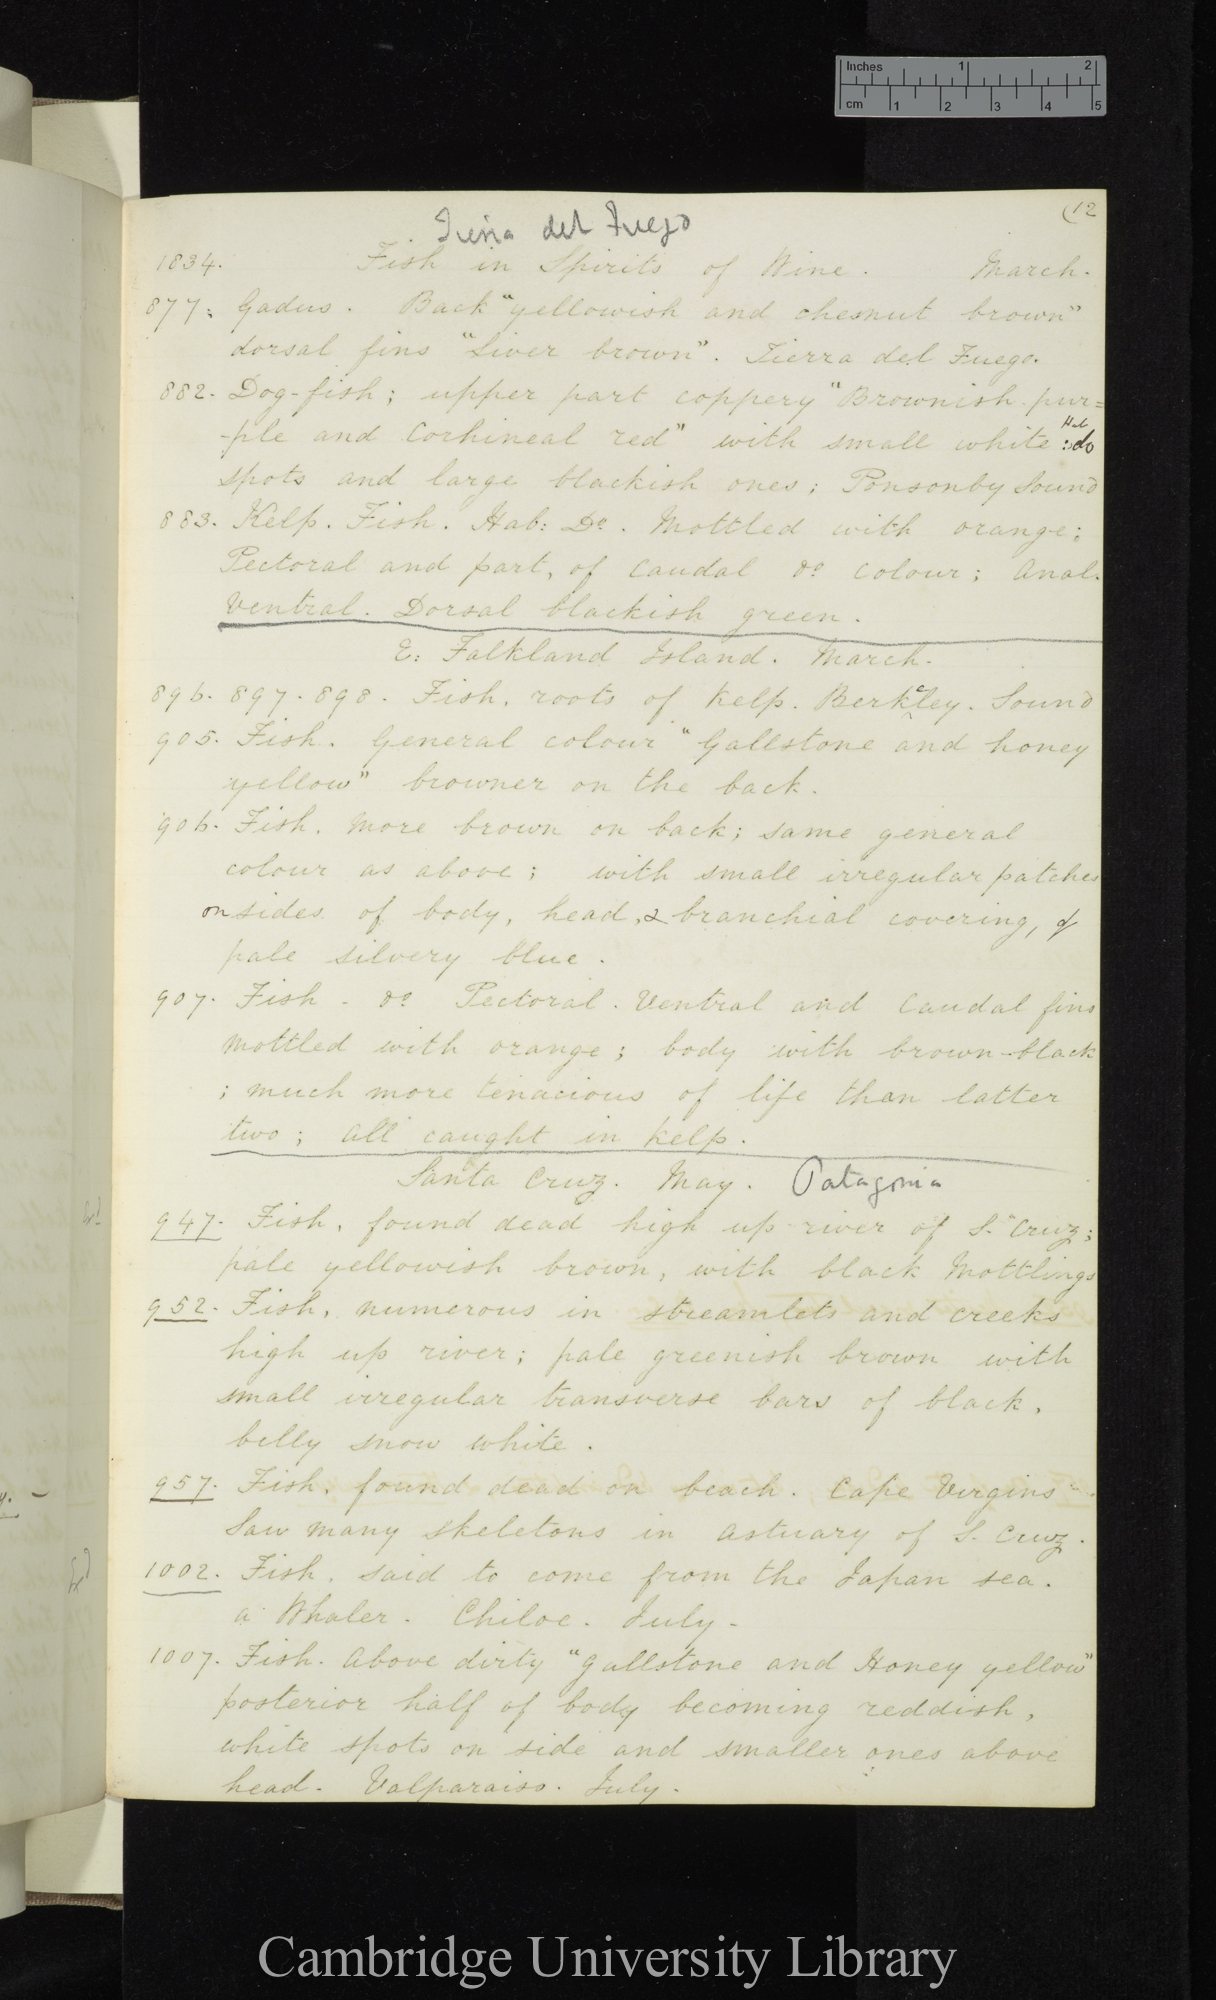 Inches 1 2
cm 1 2 3 4 5
(12
Tierra del Fuego
1834. Fish in Spirits of Wine. March.
877: Gadus. Back "yellowish and chesnut brown"
dorsal fins "Liver brown". Tierra del Fuego.
882. Dog-fish; upper part coppery "Brownish-pur=
-ple and Cochineal red" with small white Hab :do
spots and large blackish ones; Ponsonby Sound
883. Kelp. Fish. Hab: Do. Mottled with orange;
Pectoral and part, of Caudal do colour; Anal.
Ventral. Dorsal blackish green.
E: Falkland Island. March.
896. 897. 898. Fish, roots of Kelp. Berkeley. Sound
905. Fish. General colour "Gallstone and honey
yellow" browner on the back.
906. Fish. More brown on back; same general
colour as above; with small irregular patches
on sides of body, head, & branchial covering, of
pale silvery blue.
907. Fish - do Pectoral. Ventral and Caudal fins
mottled with orange; body with brown-black
; much more tenacious of life than latter
two; all caught in Kelp.
Santa Cruz. May. Patagonia
947. Fish, found dead high up river of S. Cruz;
pale yellowish brown, with black Mottlings
952. Fish, numerous in streamlets and creeks
high up river; pale greenish brown with
small irregular transverse bars of black,
belly snow white.
957. Fish, found dead on beach. Cape Virgins -.
Saw many skeletons in Astuary of S. Cruz.
1002. Fish, said to come from the Japan sea.
a Whaler. Chiloe. July -
1007. Fish. Above dirty "gallstone and Honey yellow"
posterior half of body becoming reddish,
white spots on side and smaller ones above
head. Valparaiso. July.
Cambridge University Library